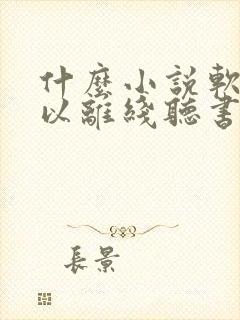 什麼小説軟
以離綫聽書
長景